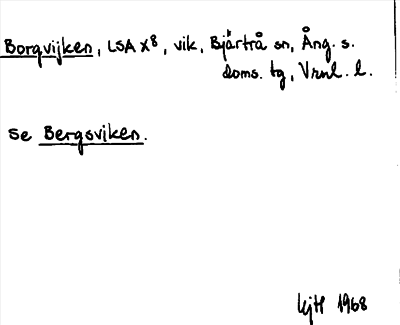 Borgvijken, LSA X8, vik, Bjärtrå sn, Ång. s.
doms. tg, Vrnl. l.
se Bergsviken.
kjtf 1968